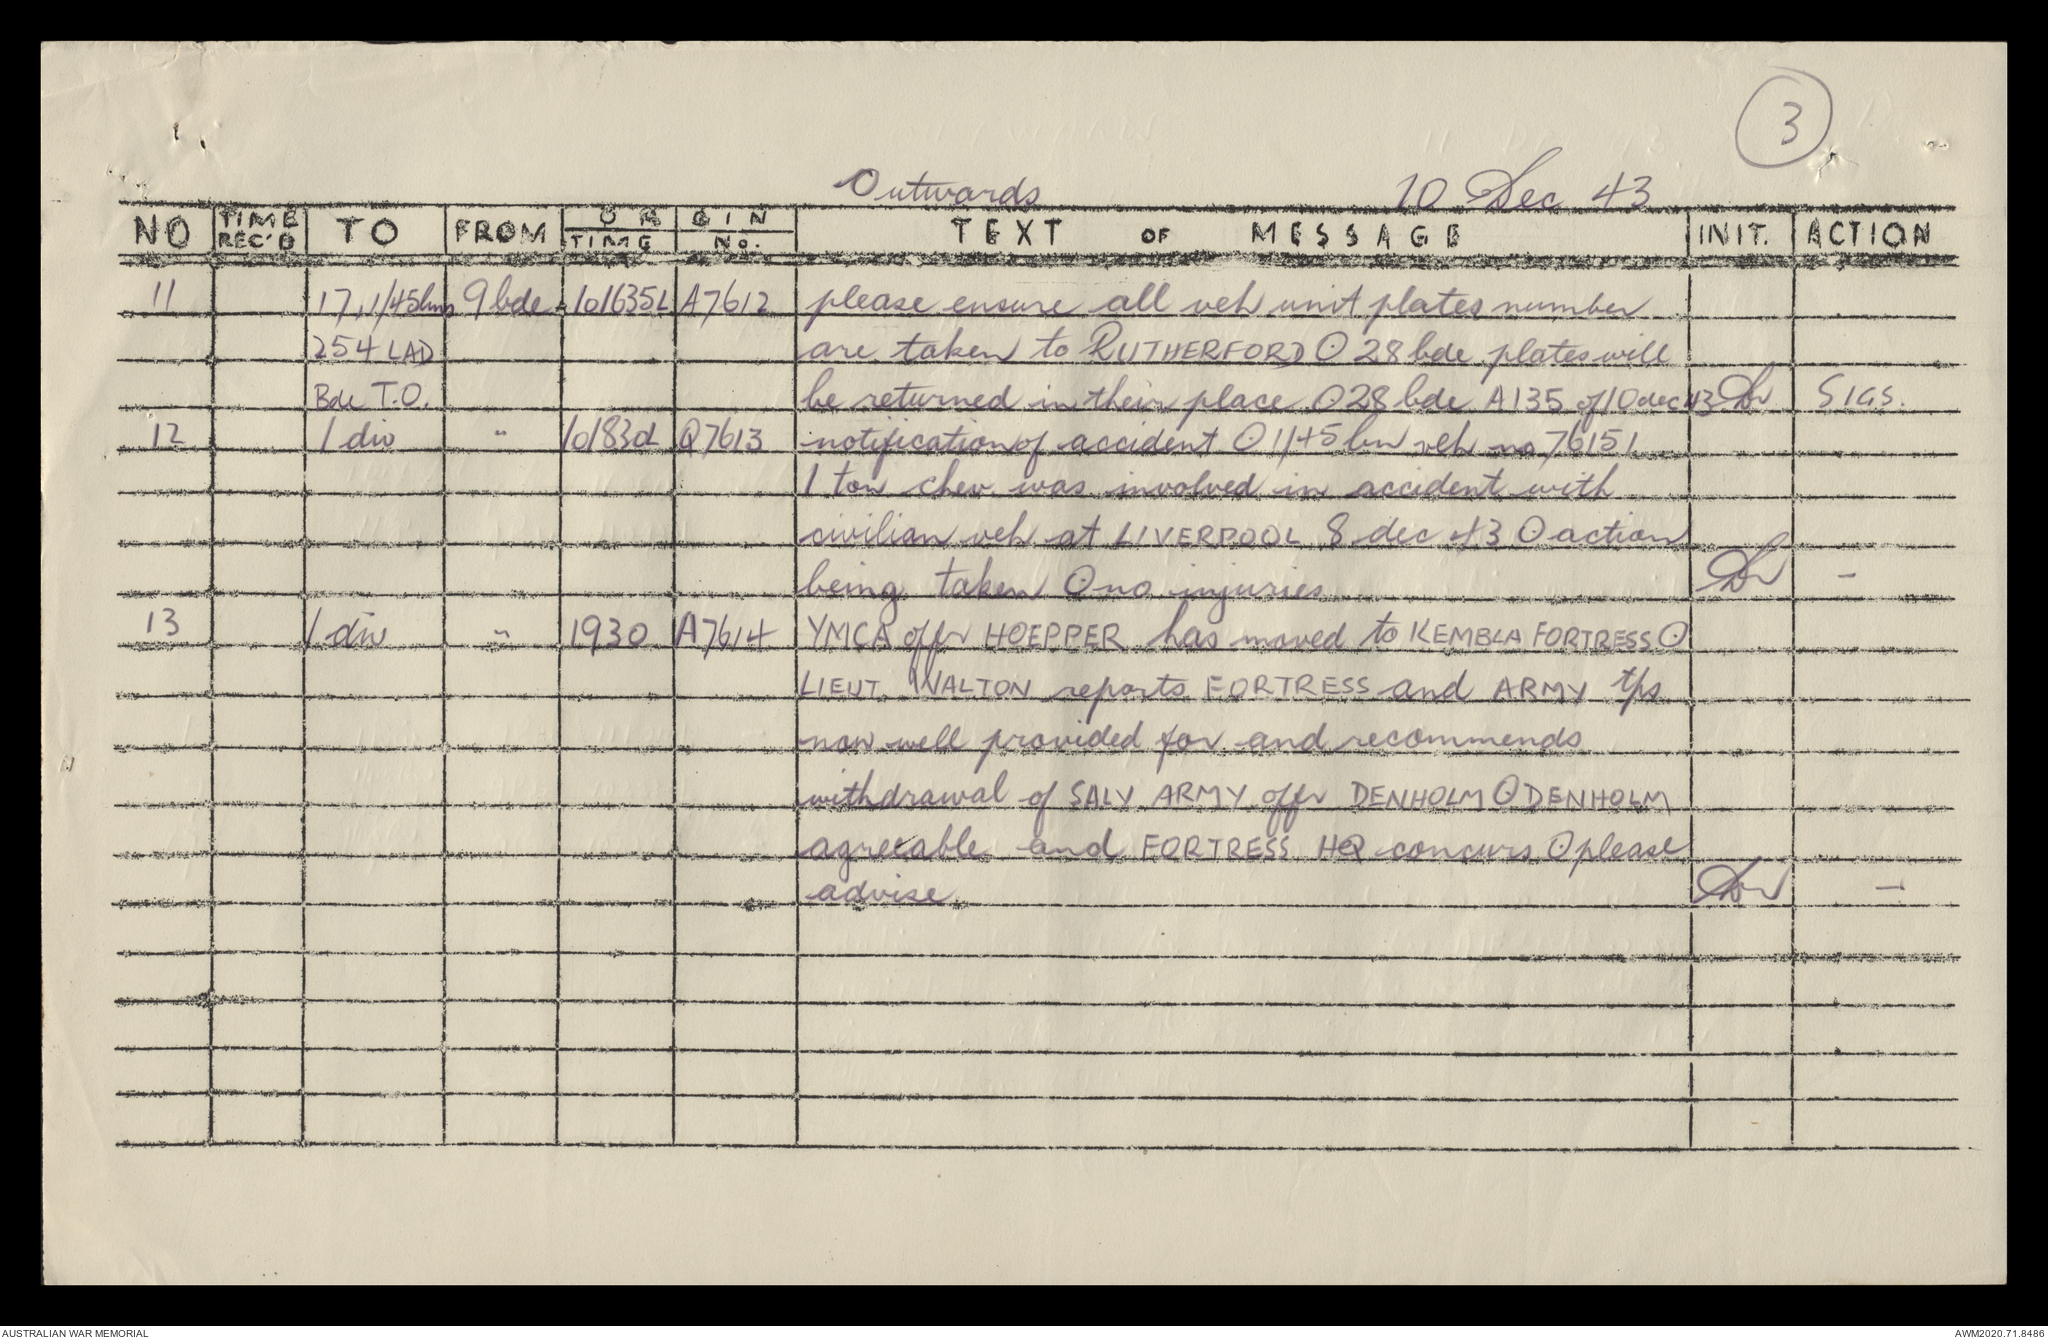 3
Outwards 10 Dec 43
NO TIME REC'D TO FROM ORIGIN TIME No. TEXT OF MESSAGE INIT. ACTION
11 17, 1/45 bns 9 bde 101635L A7612 please ensure all veh unit plates number
254 LAD are taken to RUTHERFORD ⊙ 28 bde plates will
Bde T.O. be returned in their place ⊙ 28 bde A135 of 10 dec 43 SIGS.
12 1 div " 101830L Q7613 notification of accident ⊙ 1/45 bn veh no 76151
1 ton chev was involved in accident with
civilian veh at LIVERPOOL 8 dec 43 ⊙ action
being taken ⊙ no injuries -
13 1 div " 1930 A7614 YMCA offr HOEPPER has moved to KEMBLA FORTRESS ⊙
LIEUT WALTON reports FORTRESS and ARMY tps
now well provided for and recommends
withdrawal of SALV ARMY offr DENHOLM ⊙ DENHOLM
agreeable and FORTRESS HQ concurs ⊙ please
advise -
AUSTRALIAN WAR MEMORIAL AWM2020.71.8486